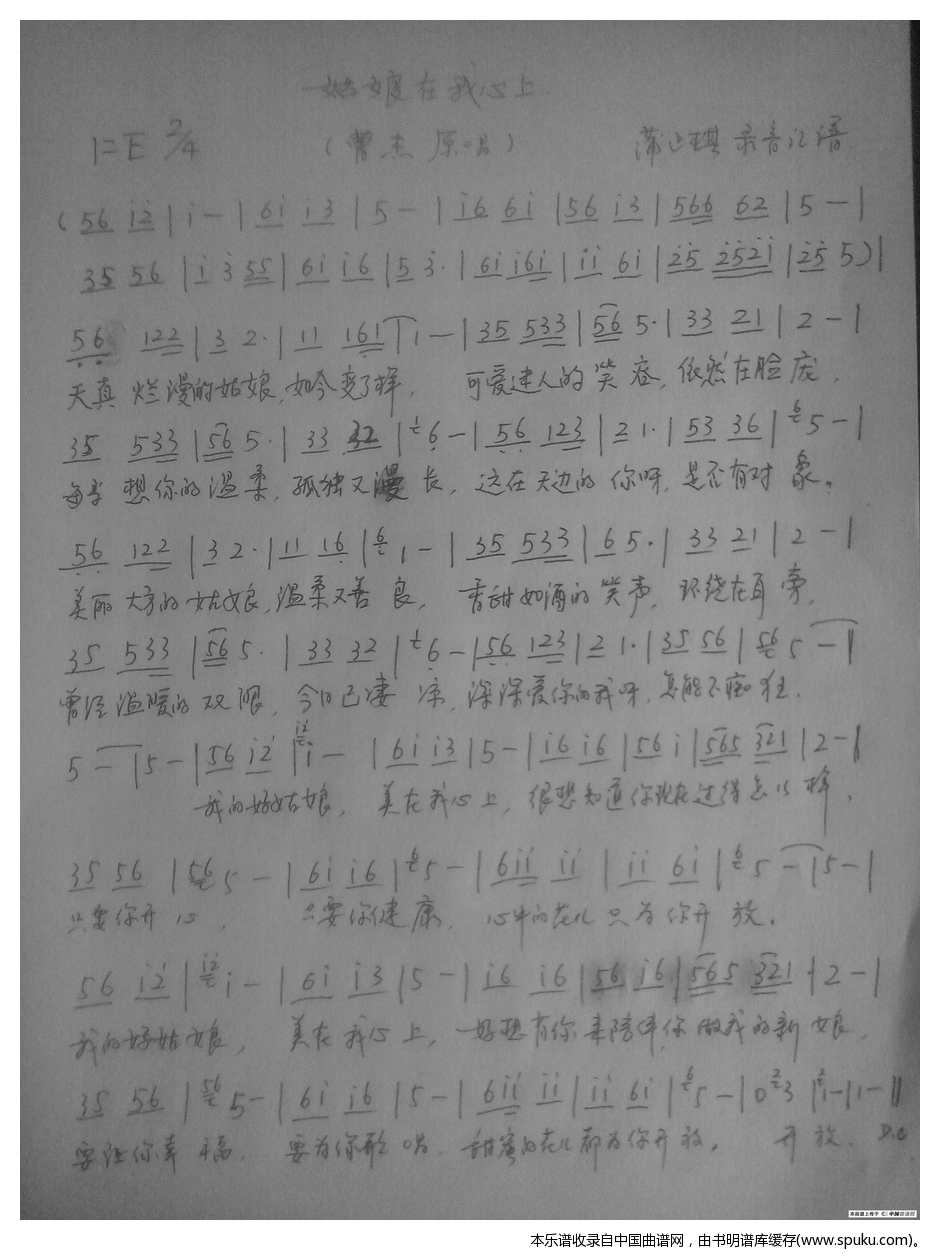 姑娘在我心上
1=E 2/4 (曹杰原唱) 蒲 琪 录音记谱
(56 i2 | i — | 6i i3 | 5 — | i6 6i | 56 i3 | 566 62 | 5 — |
35 56 | i 3 55 | 6i i6 | 5 3· | 6i i6i | ii 6i | 25 252i | 25 5) |
56 122 | 3 2· | 11 161 | 1 — | 35 533 | 56 5· | 33 21 | 2 — |
天真 烂漫的姑娘,如今变了样, 可爱迷人的笑容,依然在脸庞,
35 533 | 56 5· | 33 32 | 1 6 — | 56 123 | 2 1· | 53 36 | 6 5 — |
每当 想你的温柔,孤独又漫长,远在天边的你呀,是否有对象。
56 122 | 3 2· | 11 16 | 6 1 — | 35 533 | 6 5· | 33 21 | 2 — |
美丽大方的姑娘,温柔又善良, 香甜如酒的笑声,环绕在耳旁,
35 533 | 56 5· | 33 32 | 1 6 — | 56 123 | 2 1· | 35 56 | 56 5 — |
曾经温暖的双眼,今日已凄凉,深深爱你的我呀,怎能不痴狂.
5 — | 5 — | 56 i2 | i2 i — | 6i i3 | 5 — | i6 i6 | 56 i | 565 321 | 2 — |
我的好姑娘, 美在我心上,很想知道你现在过得怎么样,
35 56 | 56 5 — | 6i i6 | 6 5 — | 6ii ii | ii 6i | 6 5 — | 5 — |
只要你开心, 只要你健康, 心中的花儿只为你开放.
56 i2 | i2 i — | 6i i3 | 5 — | i6 i6 | 56 i6 | 565 321 | 2 — |
我的好姑娘, 美在我心上,好想有你来陪伴,你做我的新娘,
35 56 | 56 5 — | 6i i6 | 5 — | 6ii ii | ii 6i | 6 5 — | 0 2 3 | 2 1 — | 1 — ||
要让你幸福, 要为你歌唱, 甜蜜的花儿都为你开放, 开放. D.C
本乐谱收录自中国曲谱网，由书明谱库缓存(www.spuku.com)。